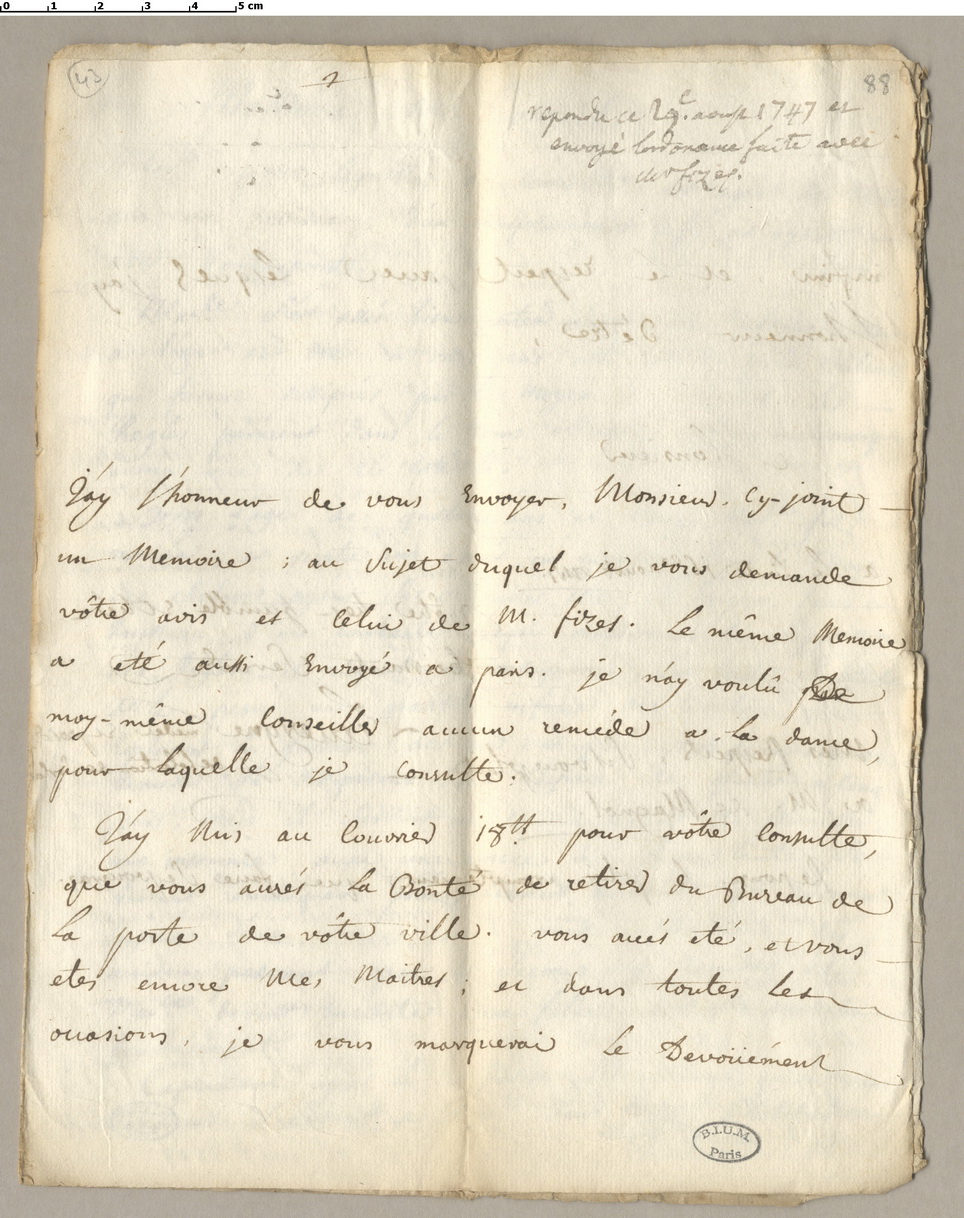 0 1 2 3 4 5 cm
43
88
repondu ce 29e. aoust 1747 et
envoyé lordonance faite avec
mr fizes.
J'áy l'honneur de vous Envoyer, Monsieur. Cy-joint
un Memoire ; au Sujet duquel je vous demande
vôtre avis et Celui de M. fizes. Le même Memoire
a eté aussi Envoyé a paris. je n'áy voulû
moy-même Conseiller aucun reméde a la dame,
pour Laquelle je consulte.
J'áy Mis au Courrier 18tt pour vôtre Consulte,
que vous aurés La Bonté de retirer du Bureau de
La poste de vôtre ville. vous avés eté, et vous
etes encore Mes Maitres ; et dans toutes Les
occasions, je vous marquerai Le Devoüement
B.I.U.M.
Paris